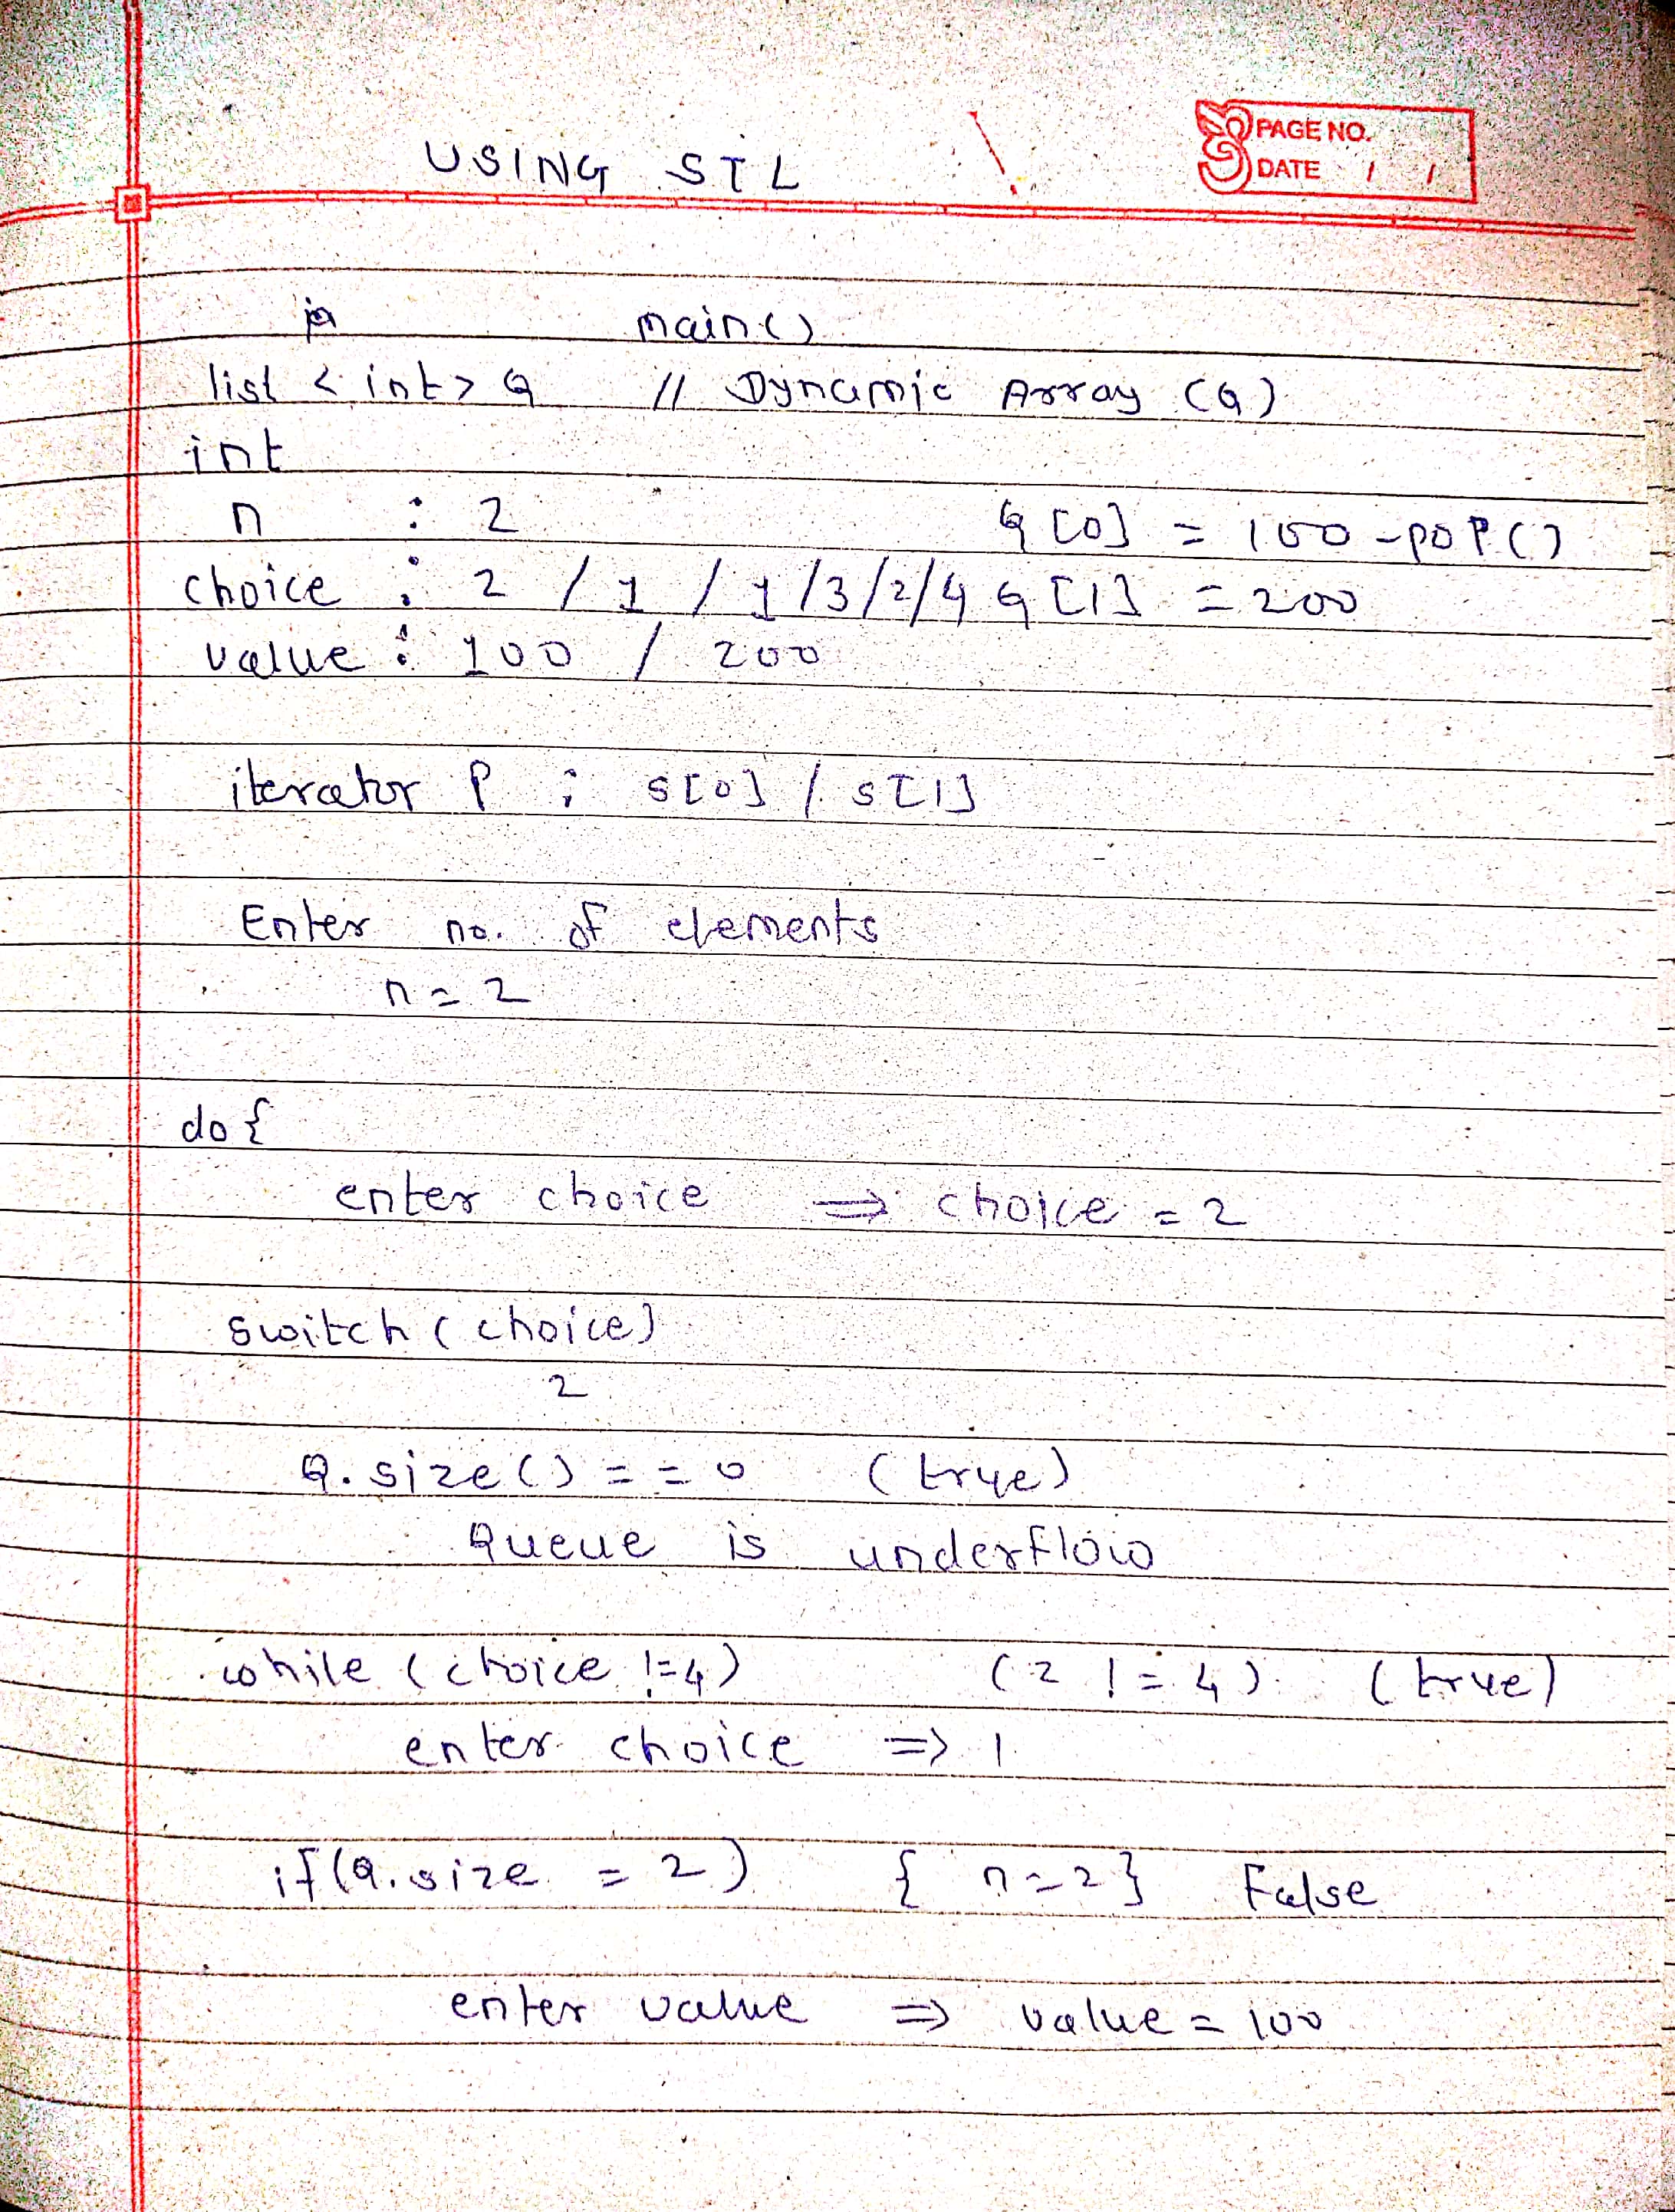 USING STL
PAGE NO.
DATE / /
main()
list <int> Q // Dynamic Array (Q)
int
n : 2 Q[0] = 100 - POP()
choice : 2 / 1 / 1 /3/2/4 Q[1] = 200
value : 100 / 200
iterator P : S[0] / S[1]
Enter no. of elements
n = 2
do {
enter choice ⇒ choice = 2
switch (choice)
2
Q.size() == 0 (true)
Queue is underflow
while (choice !=4) (2 != 4) (true)
enter choice => 1
if(Q.size = 2) { n=2} False
enter value => value = 100